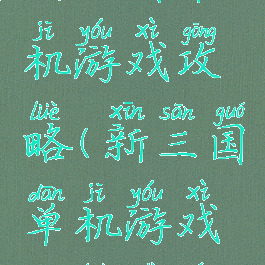 jī yóu xì gōng
机游戏攻
lüè xīn sān guó
略(新三国
dān jī yóu xì
单机游戏